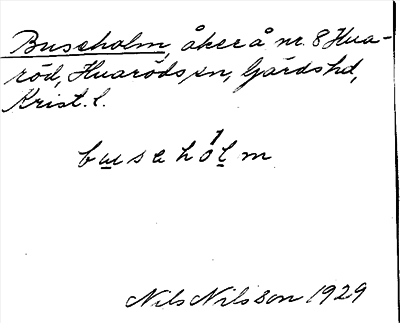 Buseholm, åker å nr. 8 Hua-
röd, Huaröds sn, Gärds hd,
Krist. l.
busehólm
Nils Nilsson 1929